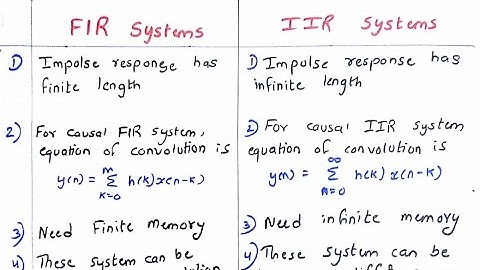 FIR Systems
1) Impulse response has
finite length
2) For causal FIR system,
equation of convolution is
y(n) = M Σ K=0 h(k) x(n-k)
3) Need Finite memory
4) These system can be
IIR Systems
1) Impulse response has
infinite length
2) For causal IIR system
equation of convolution is
y(n) = ∞ Σ n=0 h(k) x(n-k)
3) Need infinite memory
4) These system can be